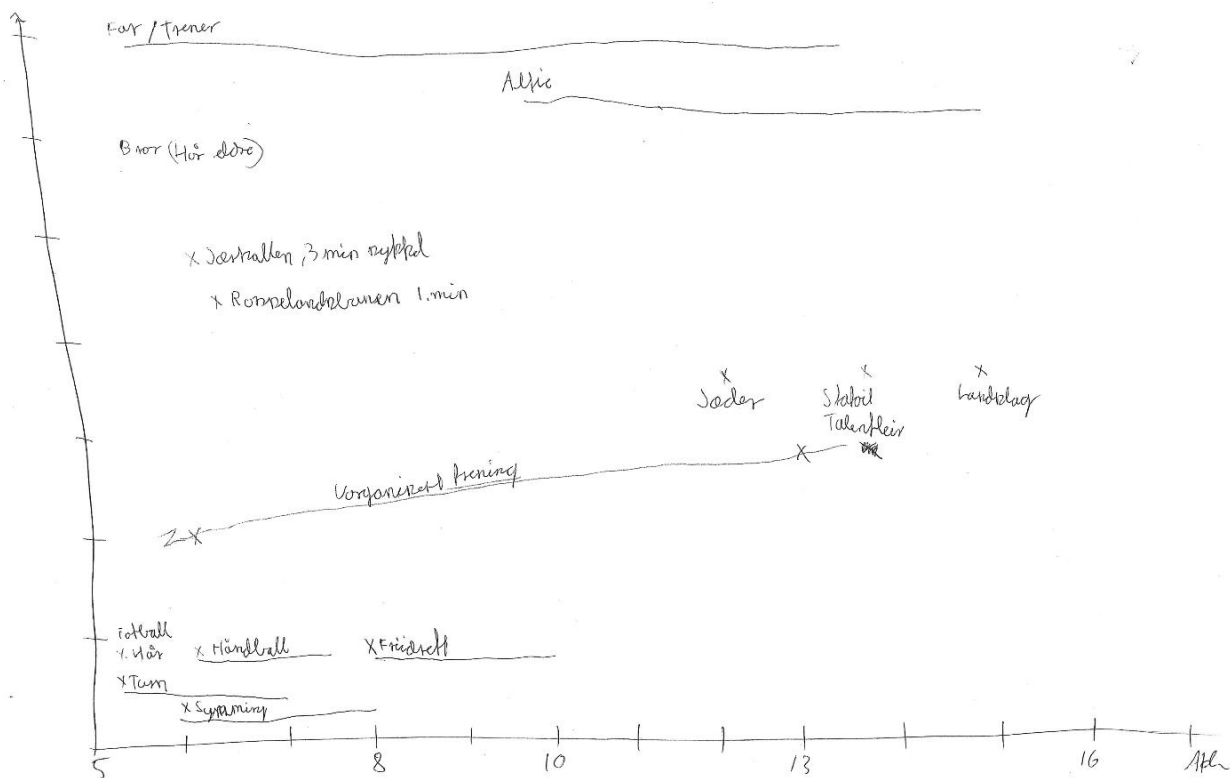 Far / Trener
Alfie
Bror (4år eldre)
x Jærhallen, 3 min sykkel
x Rosselandsbanen 1. min
x x x
Jæder Statoil Landslag
Talentleir
Uorganisert trening
Fotball
x 4år x Håndball x Friidrett
x Turn
x Symming
5 8 10 13 16